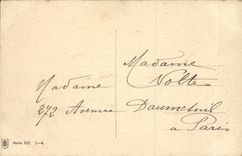 Madame
Nolte
Madame
272 Avenue Daumesnil
à Paris
Serie 550 1-4.